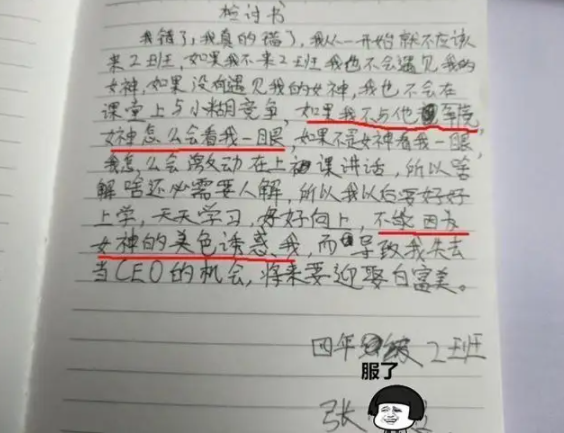 检讨书
我错了,我真的错了,我从一开始就不应该
来2班,如果我不来2班我也不会遇见我的
女神,如果没有遇见我的女神,我也不会在
课堂上与小糊竞争,如果我不与他竞
女神怎么会看我一眼,如果不是女神看我一眼
我怎么会激动在上课讲话,所以啥
解啥还必需要人解,所以我以后要好好
上学,天天学习,好好向上,不能因为
女神的美色诱惑我,而导致我失去
当CEO的机会,将来要迎娶白富美。
四年级2班
服了
张